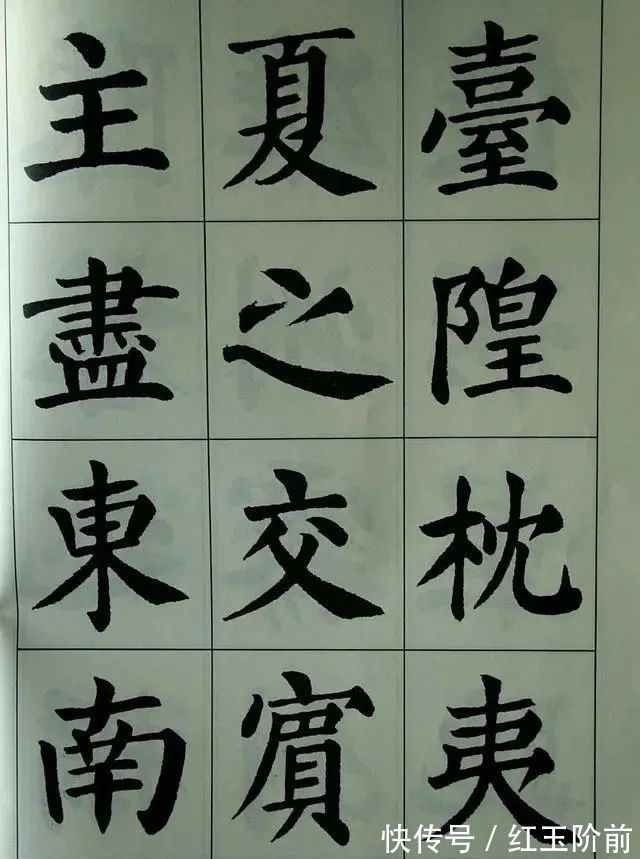 臺隍枕夷
夏之交賓
主盡東南
快传号/红玉阶前